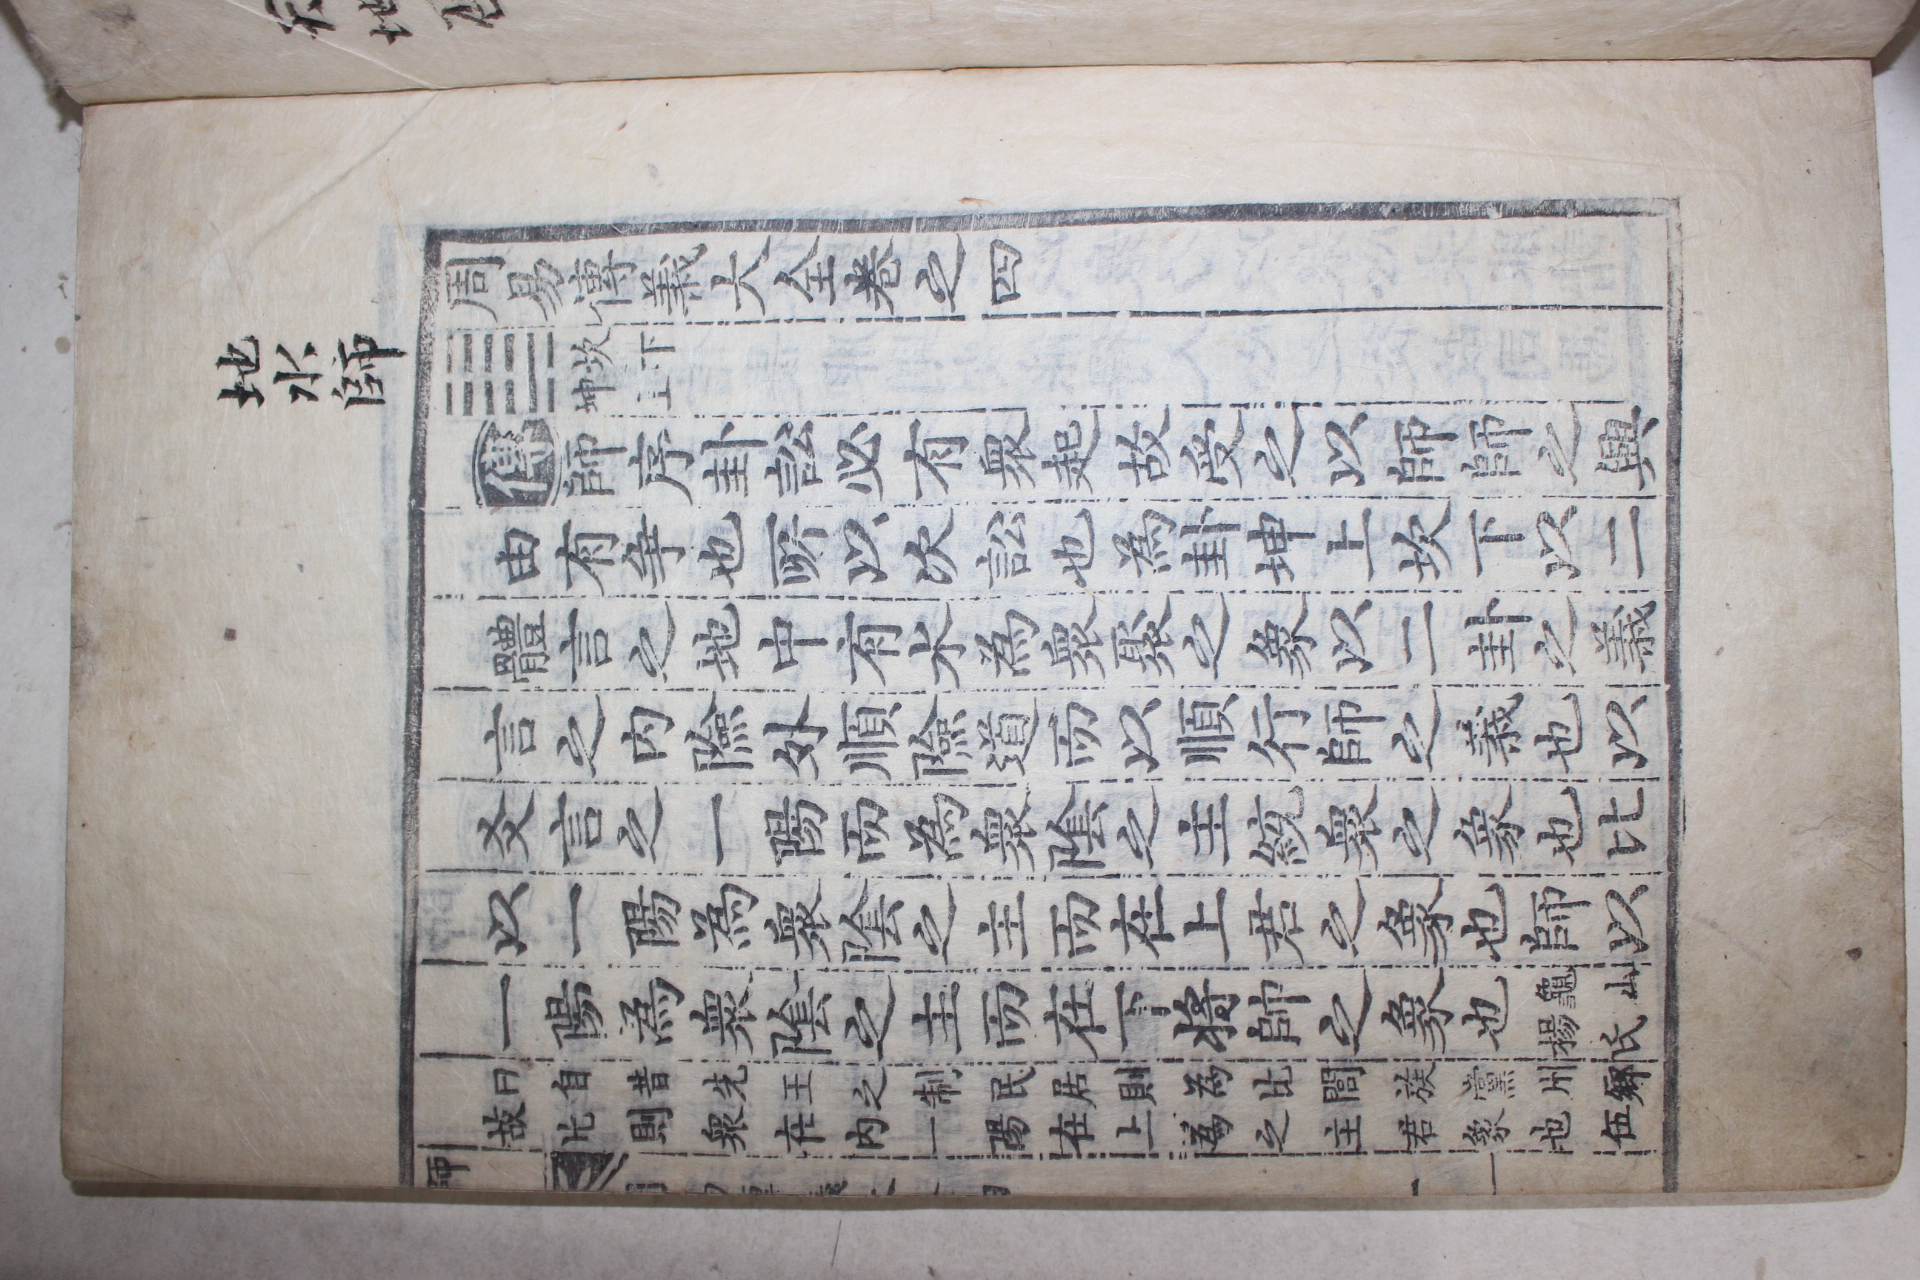 地水師
周易傳義大全卷之四
坎下
坤上
傳師序卦訟必有衆起故受之以師師之興
由有爭也所以次訟也為卦坤上坎下以二
體言之地中有水為衆聚之象以二卦之義
言之內險外順險道而以順行師之義也以
爻言之一陽而為衆陰之主統衆之象也比
以一陽為衆陰之主而在上君之象也師以
一陽為衆陰之主而在下將帥之象也龜山
楊氏
曰自昔先王之制民居則為比閭族黨州鄉
故比則衆在內一陽在上為之主君象也伍
師
地